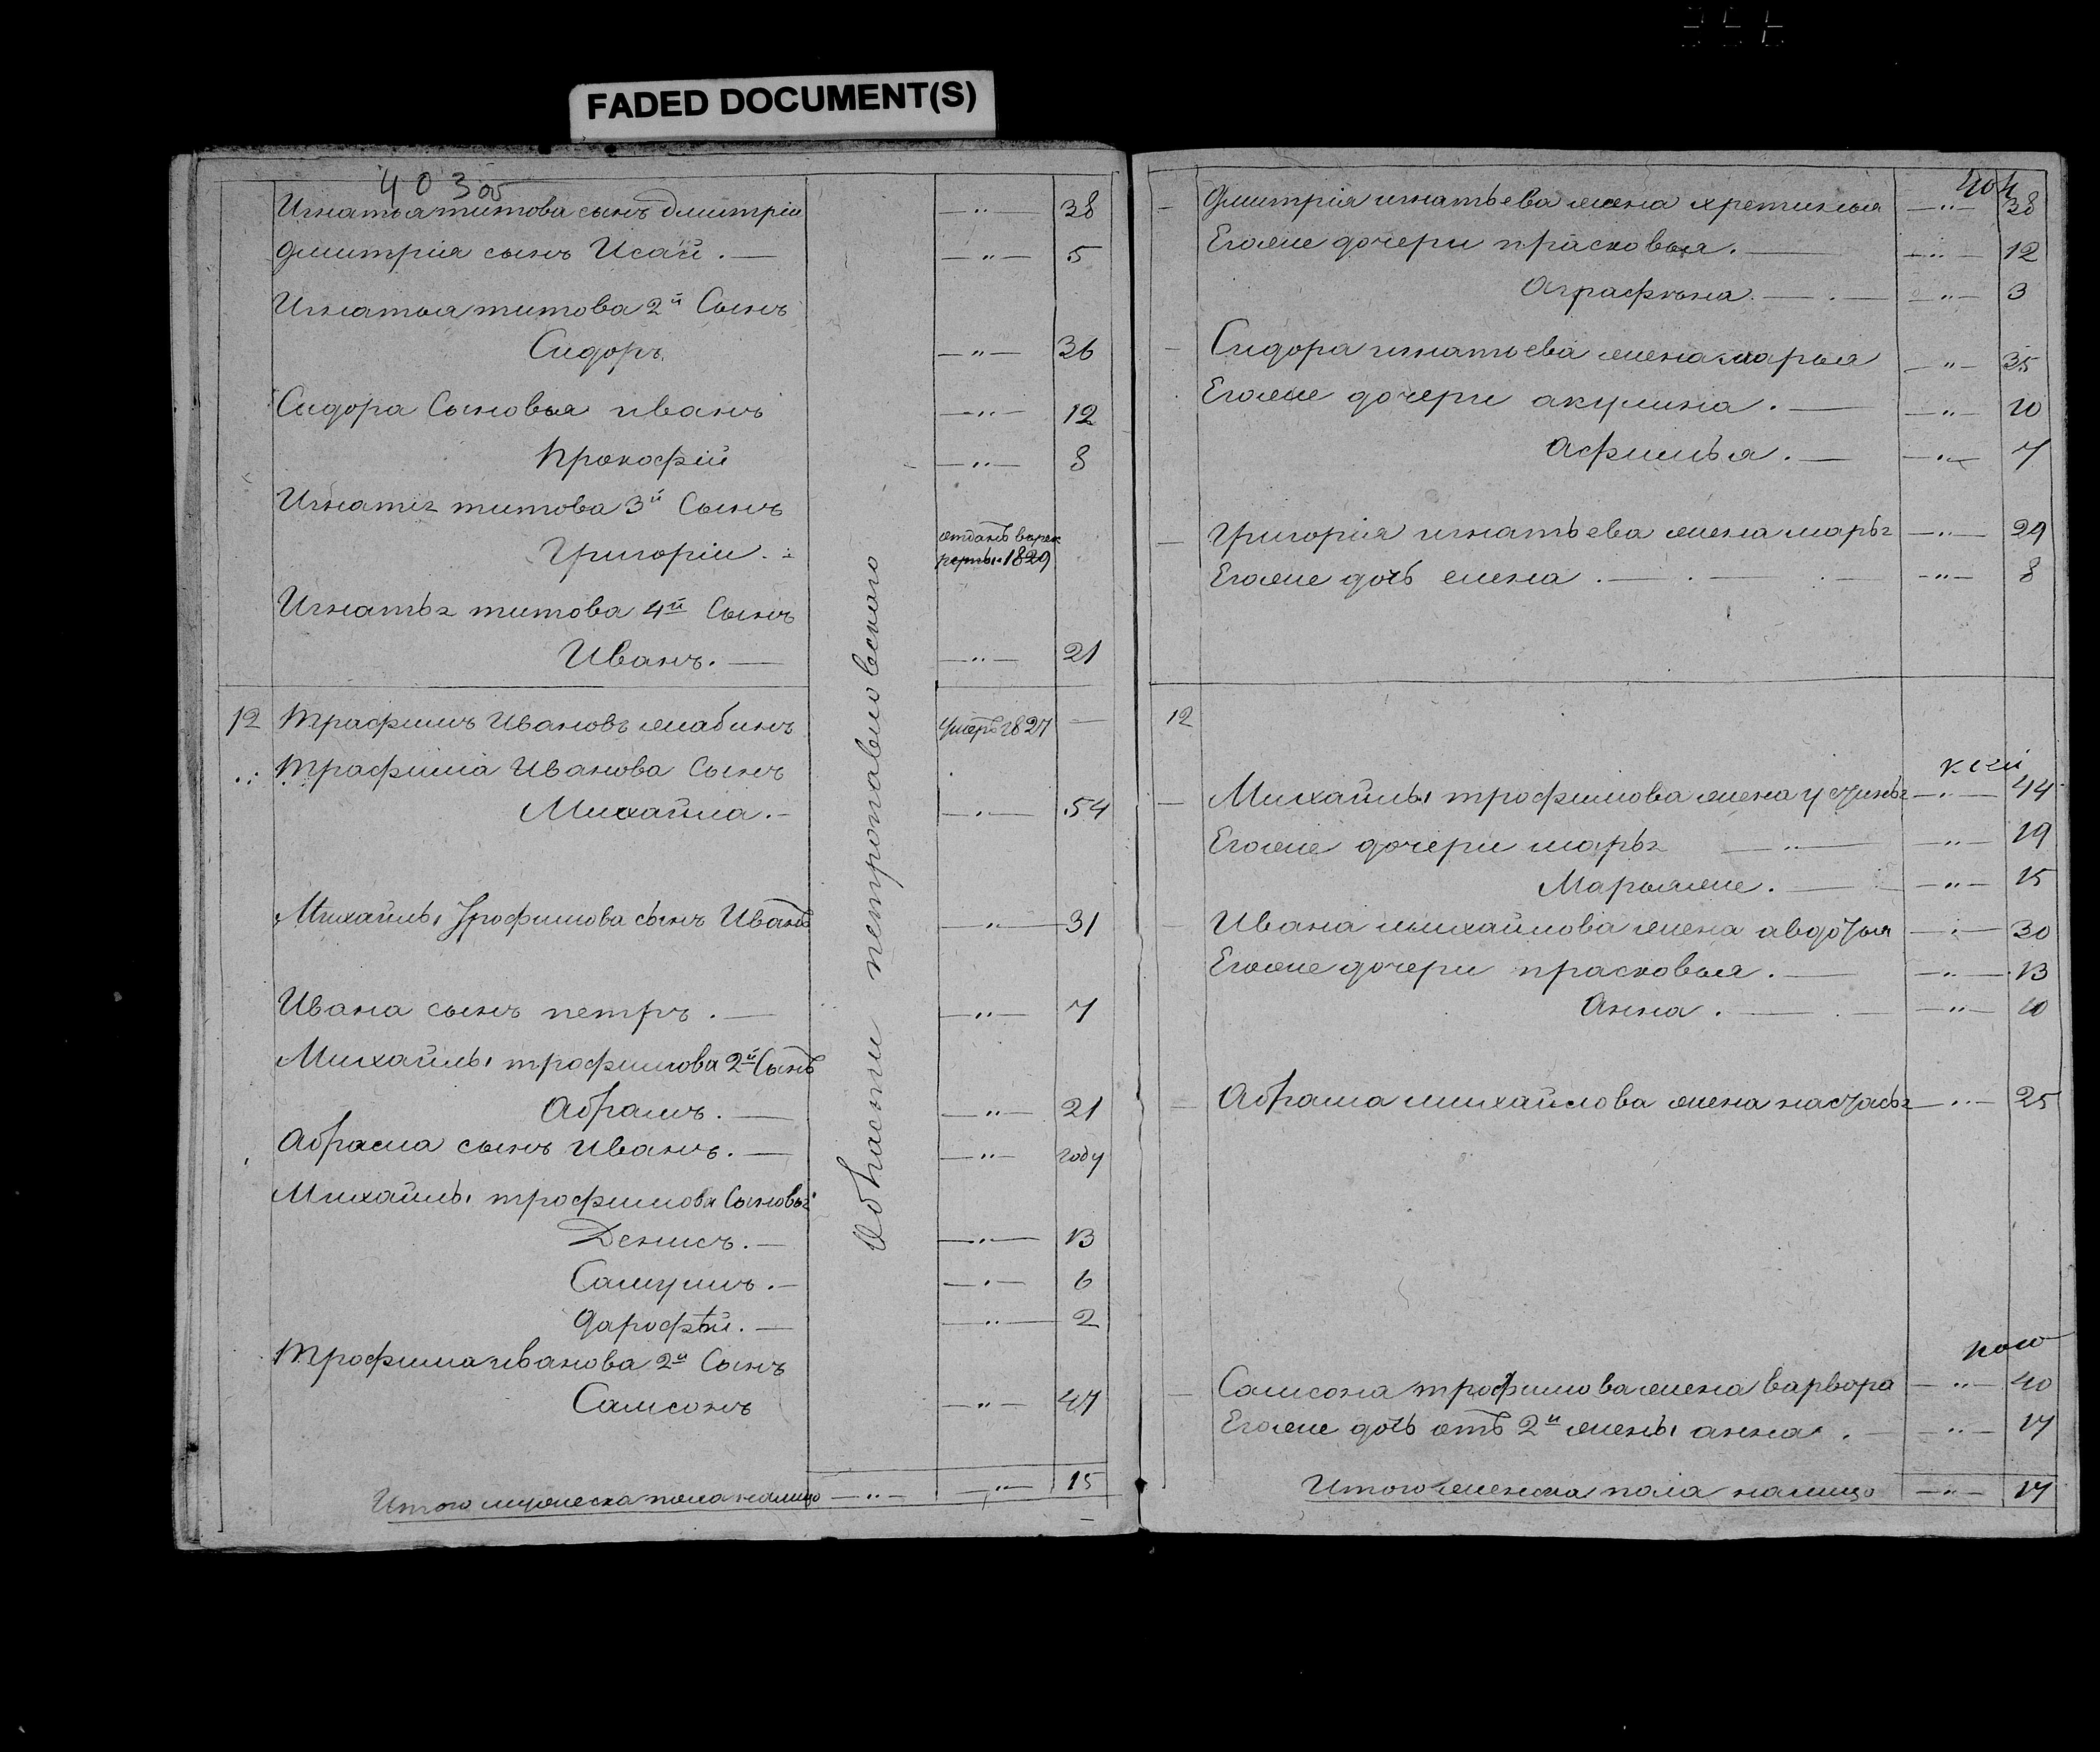 FADED DOCUMENT(S)
403 об
Игнатья титова сынъ дмитріи —"— 38
дмитрія сынъ Исай . — —"— 5
Игнатья титова 2й Сынъ
Сидоръ. —"— 36
Сидора Сыновья иванъ —"— 12
прокофій —"— 8
Игнатья титова 3й Сынъ
Григоріи . отданъ врек
реты 1829
Игнатья титова 4й Сынъ
Иванъ. — —"— 21
12 Трафимъ Ивановъ жабинъ умеръ 1827 —
Трафима Иванова Сынъ
Михайла. - —"— 54
Михайлы Трофимова сынъ Иванъ —"— 31
Ивана сынъ петръ . — —"— 7
Михайлы трофимова 2й Сынъ
Абрамъ. — —"— 21
Абрама сынъ иванъ. — —"— году
Михайлы трофимова Сыновья
Денисъ. — —"— 13
Самуилъ. — —"— 6
дарофѣй. — —"— 2
Трофима иванова 2й Сынъ
Самсонъ —"— 47
Итого мужеска пола налицо —"— —"— 15
Области петропавловского
404
Дмитрія игнатьева жена хретинья —"— 38
Егоже дочери прасковья. — —"— 12
Аграфѣна. — —"— 3
Сидора игнатьева жена марья —"— 35
Егоже дочери акулина . — —"— 10
Афимья . — —"— 7
Григорія игнатьева жена марья —"— 29
Егоже дочь елена . — —"— 8
12
Михайлы трофимова жена устинья —"— 44
Егоже дочери марья —"— —"— 19
Марьяже . — —"— 15
Ивана михайлова жена авдотья —"— 30
Егоже дочери прасковья . — —"— 13
Анна . — —"— 10
Абрама михайлова жена настасья —"— 25
Самсона трофимова жена варвора —"— 40
Егоже дочь отъ 2й жены анна . —"— 17
Итого женска пола налицо —"— 17